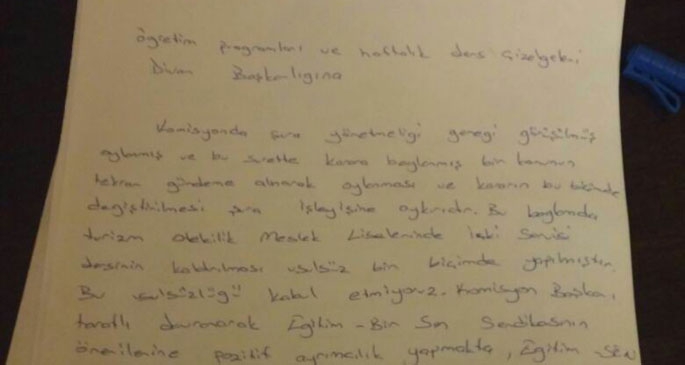 öğretim programları ve haftalık ders çizelgeleri
Divan Başkanlığına
Komisyonda şura yönetmeliği gereği görüşülmüş
oylanmış ve bu surette karara bağlanmış bir konunun
tekrar gündeme alınarak oylanması ve kararın bu biçimde
değiştirilmesi şura işleyişine aykırıdır. Bu bağlamda
turizm otelcilik Meslek Liselerinde İçki Servisi
dersinin kaldırılması usulsüz bir biçimde yapılmıştır.
Bu usulsüzlüğü kabul etmiyoruz. Komisyon Başkanı,
taraflı davranarak Eğitim-Bir Sen Sendikasının
önerilerine pozitif ayrımcılık yapmakta, Eğitim-SEN